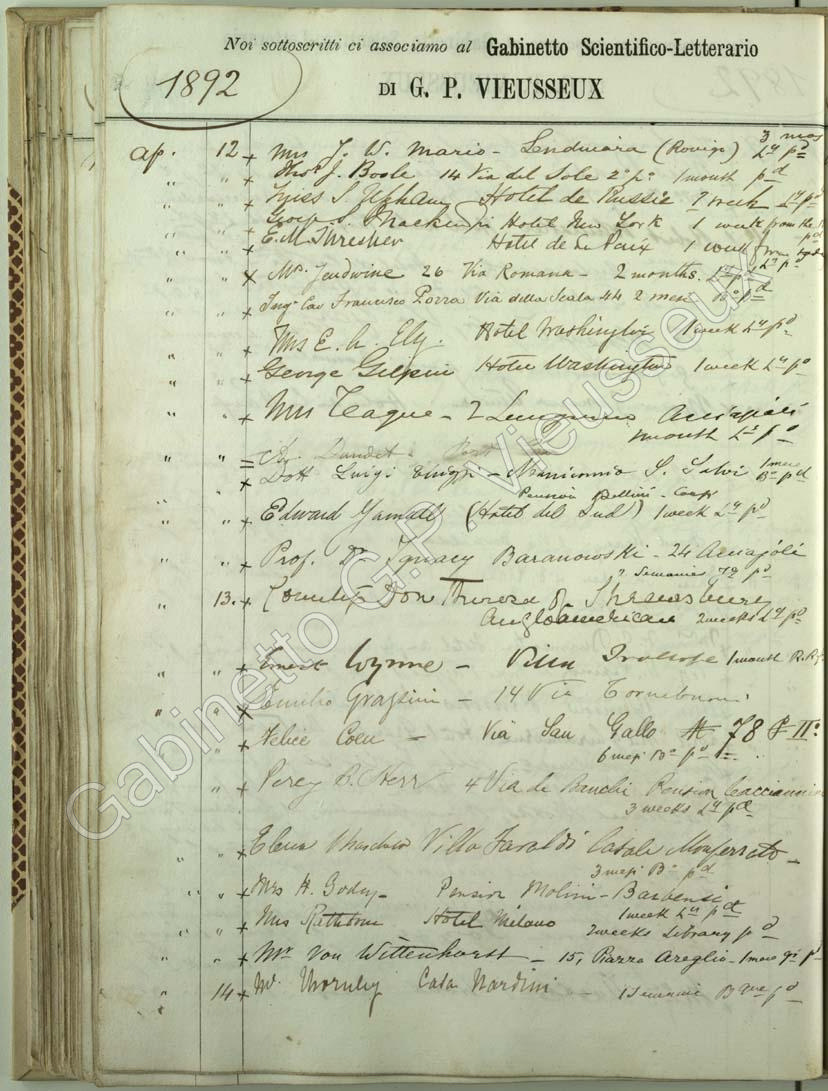 Noi sottoscritti ci associamo al Gabinetto Scientifico-Letterario
DI G. P. VIEUSSEUX
1892
3 mos
ap. 12 + Mrs J. W. Mario - Lendinara (Rovigo) Ly pd
" " + Thos J. Boole 14 Via del Sole 2° po 1 month pd
" " + Miss S Upham Hotel de Russie 1 week Ly pd
" " + S. Mackenzie Hotel New York 1 week from the
pd
" " + E. M. Thresher Hotel de la Paix 1 week from
Ly pd
" " x Mrs Jendwine 26 Via Romana - 2 months. Ly pd
" " + Ingr Cav Francesco Via della Scala 44 2 mesi Bo pd
" " + Mrs E. A. Ely. Hotel Washington 1 week Ly pd
" " + George Gilpin Hotel Washington 1 week Ly pd
" " + Mrs Teague - 2 Lungarno Acciajoli
1 month Ly pd
" " =
" " x Dott Luigi - S. Salvi 1 mese Bo pd
Pension Bellini - Corso
" " + Edward Yarnall (Hotel del Sud) 1 week Ly pd
" " + Prof. Dr Ignacy Baranowski - 24 Acciajoli
2 Semanies pd
" 13. + Theresa of Shrewsbury
Angloamerican 2 weeks Ly pd
" " + Ernest Wynne - Villa Trollope 1 month R. R.
" " x Emilio Grassini - 14 Via Tornabuoni
" " + Felice Coen - Via San Gallo N 78 P II°
6 mesi Bo pd
" " + Percy C. Herr 4 Via de Banchi Pension
3 weeks Ly pd
+ Elena Villa Faraldi Casale Monferrato -
3 mesi Bo pd
" " + Mrs H. Godey - Pension Molini - Barbensi
1 week Ly pd
" " + Mrs Rathbone Hotel Milano 2 weeks Library pd
" " + Mr Von Wittenhorst - 15, Piazza - 1 mese pd
" 14 + Mr Thornley Casa Nardini - 1 Semaine pd
Gabinetto G.P. Vieusseux